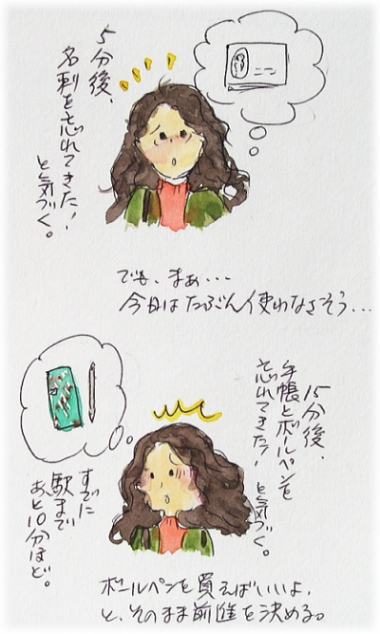 5分後、
名刺を忘れてきた!
と気づく。
でも、まぁ・・・
今日はたぶん使わなさそう・・・
15分後、
手帳とボールペンを
忘れてきた! と気づく。
すでに
駅まで
あと10分ほど。
ボールペンを買えばいいよ、
と、そのまま前進を決める。